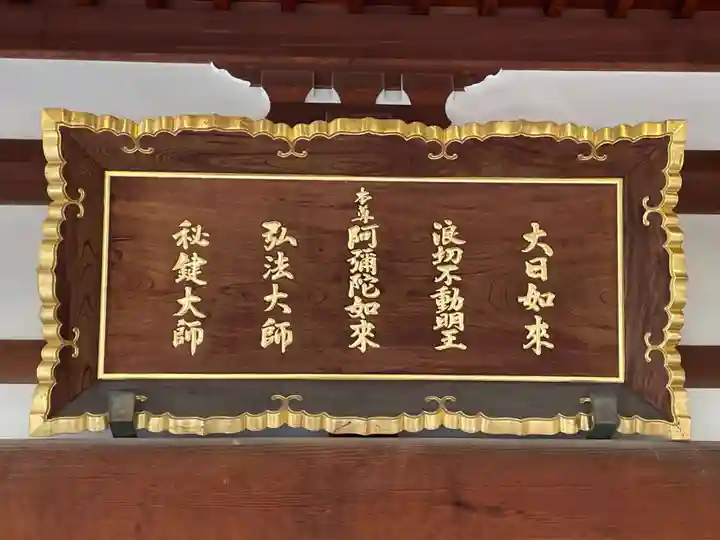 大日如來
浪切不動明王
本尊 阿彌陀如來
弘法大師
秘鍵大師